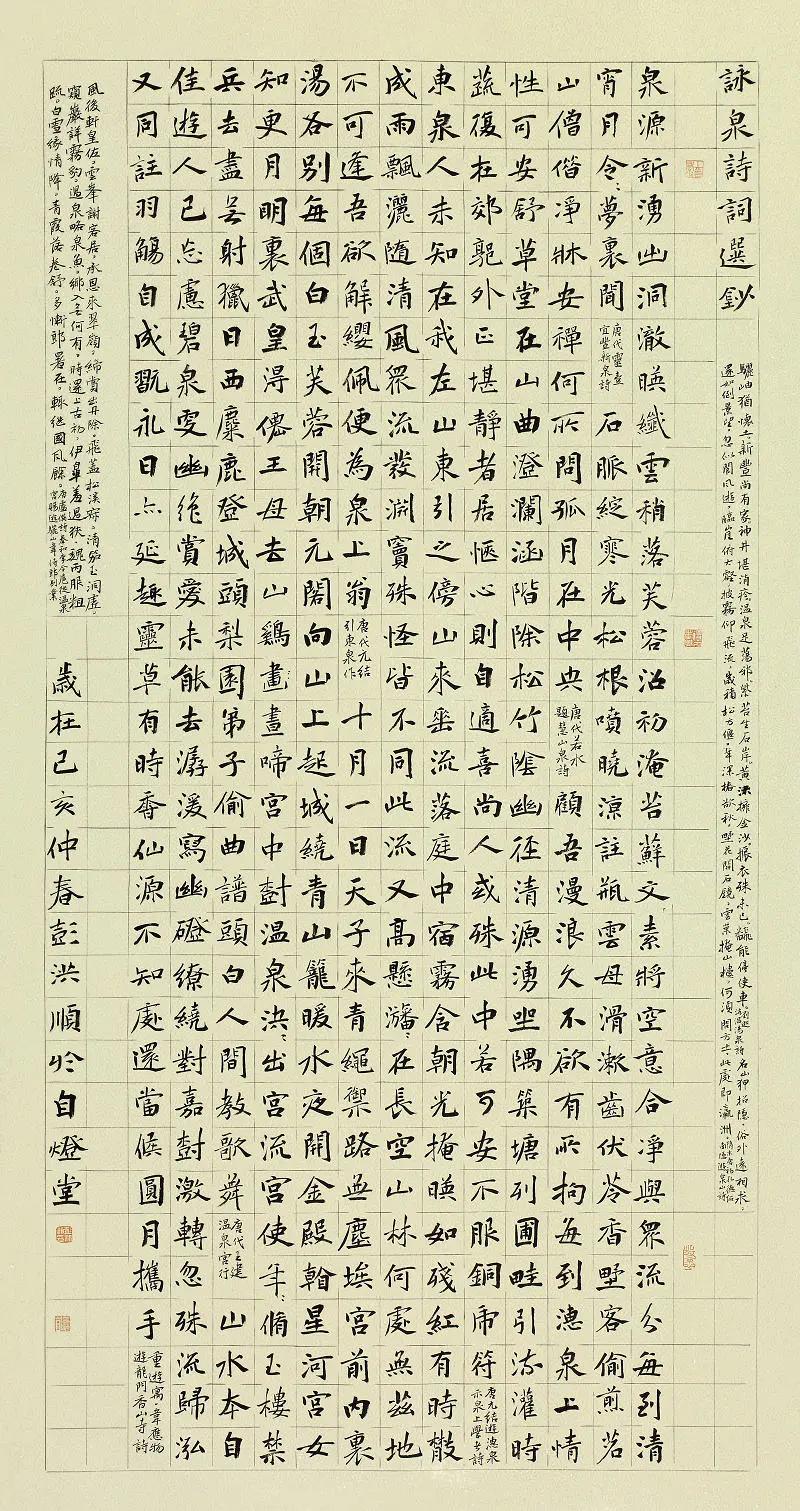 詠泉詩詞選鈔
驪岫猶懷土新豐尚有家神井堪消疹溫泉足蕩邪紫苔生石岸黃沫擁金沙振衣殊未已翻能停使車浴溫湯泉詩名山狎招隱俗外遠相求
還如倒景望忽似閬風遊臨崖俯大壑披霧仰飛流歲積松方偃年深椿欲秋野花開石鏡雲葉掩山樓何須問方士此處即瀛洲南隱遊泉山詩
泉源新湧出洞澈暎纖雲稍落芙蓉沼初淹苔蘚文素將空意合淨與眾流分每到清
宵月令〻夢裏聞唐代靈澈宜豐新泉詩石脈綻寒光松根噴曉涼註瓶雲母滑漱齒伏苓香野客偷煎茗
山僧偕淨牀安禪何所問孤月在中央唐代若水題慧山泉詩顧吾漫浪久不欲有所拘每到漶泉上情
性可安舒草堂在山曲澄瀾涵階除松竹陰幽徑清源湧坐隅築塘列圃畦引流灌時
蔬復在郊郭外正堪靜者居愜心則自適喜尚人或殊此中若可安不服銅虎符唐元結遊漶泉示泉上學者詩
東泉人未知在我左山東引之傍山來垂流落庭中宿霧含朝光掩暎如殘紅有時散
成雨飄灑隨清風眾流發淵竇殊怪皆不同此流又高懸瀋〻在長空山林何處無茲地
不可逢吾欲解纓佩便為泉上翁唐代元結引東泉作十月一日天子來青繩禦路無塵埃宮前內裏
湯各別每個白玉芙蓉開朝元閣向山上起城繞青山籠暖水夜開金殿看星河宮女
知更月明裏武皇得僊王母去山鷄晝晝啼宮中樹溫泉決〻出宮流宮使年〻脩玉樓禁
兵去盡無射獵日西麋鹿登城頭梨園弟子偷曲譜頭白人間教歌舞唐代王建溫泉宮行山水本自
佳遊人已忘慮碧泉更幽絕賞愛未能去潺湲寫幽磴繚繞對嘉樹激轉忽殊流歸泓
又同註羽觴自成翫永日亦延趣靈草有時香仙源不知處還當候圓月攜手重遊寓韋應物遊龍門香山寺詩
風後軒皇佐雲峯謝客居承恩來翠嶺締賞出丹除飛蓋松溪寂清笳玉洞虛
窺巖詳霧豹過泉略泉魚鄉入無何有時還上古初伊皋羞過狹魏丙服粗
疏白雪緣情降青霞落卷舒多慚郎署在輒繼國風餘唐盧僎詩奉和李令扈從溫泉宮賜遊驪山韋侍郎別業
歲在己亥仲春彭洪順於自燈堂